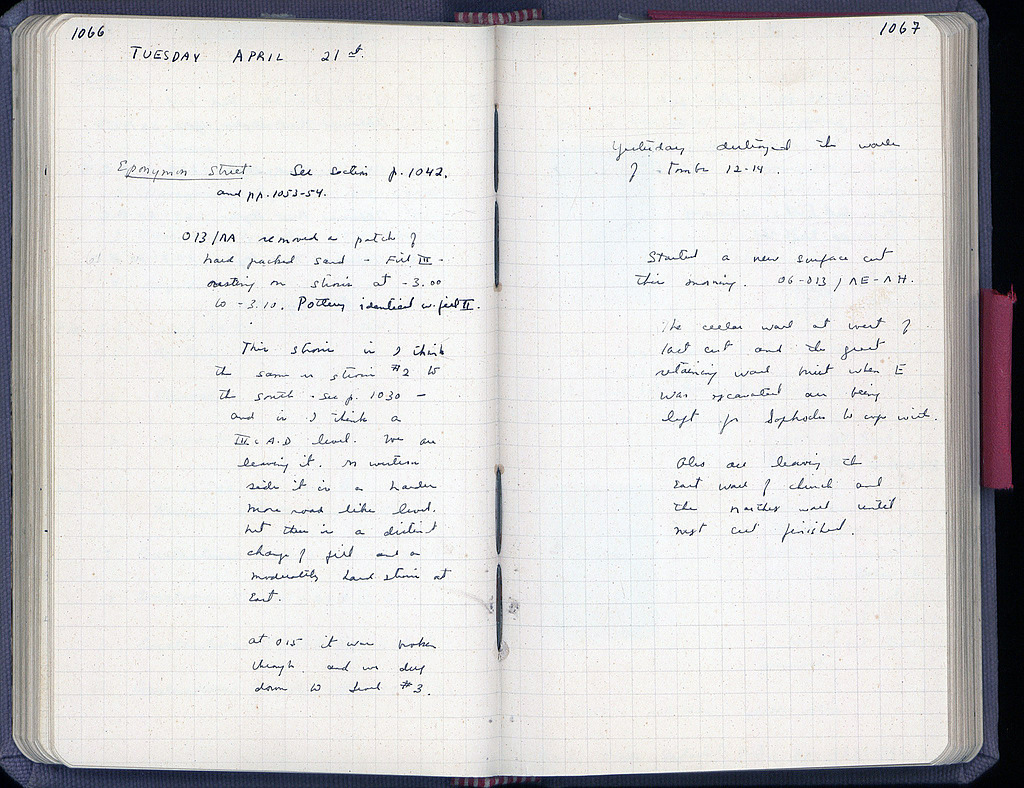 1066
TUESDAY APRIL 21st.
Eponymon Street See section p. 1042.
and pp. 1053-54.
013/ΛΑ removed a patch of
hard packed sand - Fill III -
resting on strosis at -3.00
to -3.10. Pottery identical w. fill II.
This strosis is I think
the same as strosis #2 to
the south - see p. 1030 -
and is I think a
III c A.D level. We are
leaving it. In western
side it is a harder
more road like level.
but there is a distinct
change of fill and a
moderately hard strosis at
East.
at 015 it was broken
through and we dug
down to level #3.
1067
Yesterday destroyed the walls
of Tombs 12-14.
Started a new surface cut
this morning. 06-013 / ΛΕ-ΛΗ.
The cellar wall at west of
last cut and the great
retaining wall built when E
was excavated are being
left for Sophocles to cope with.
Also are leaving the
East wall of church and
the Norther wall until
next cut finished.